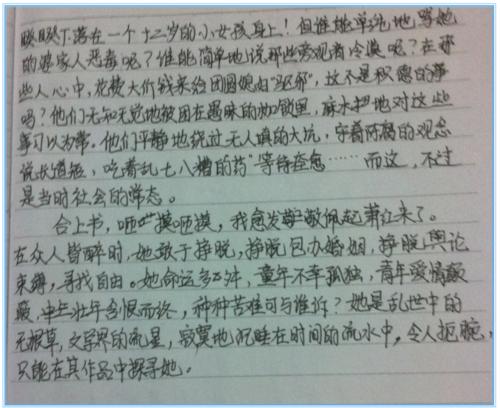 睽睽下落在一个十二岁的小女孩身上！但谁能单纯地骂她
的婆家人恶毒呢？谁能简单地说那些旁观者冷漠呢？在那
些人心中，花费大价钱来给团圆媳妇“驱邪”，这不是积德的事
吗？他们无知无觉地被困在愚昧的枷锁里，麻木地对这些
事习以为常。他们平静地绕过无人填的大坑，守着陈腐的观念
说长道短，吃着乱七八糟的药“等待痊愈……而这，不过
是当时社会的常态。
合上书，咂摸咂摸，我愈发敬佩起萧红来了。
在众人皆醉时，她敢于挣脱，挣脱包办婚姻，挣脱舆论
束缚，寻找自由。她命运多舛，童年不幸孤独，青年爱情颠
簸，中年壮年含恨而终，种种苦难可与谁诉？她是乱世中的
无根草，文学界的流星，寂寞地沉睡在时间的流水中，令人扼腕，
只能在其作品中探寻她。